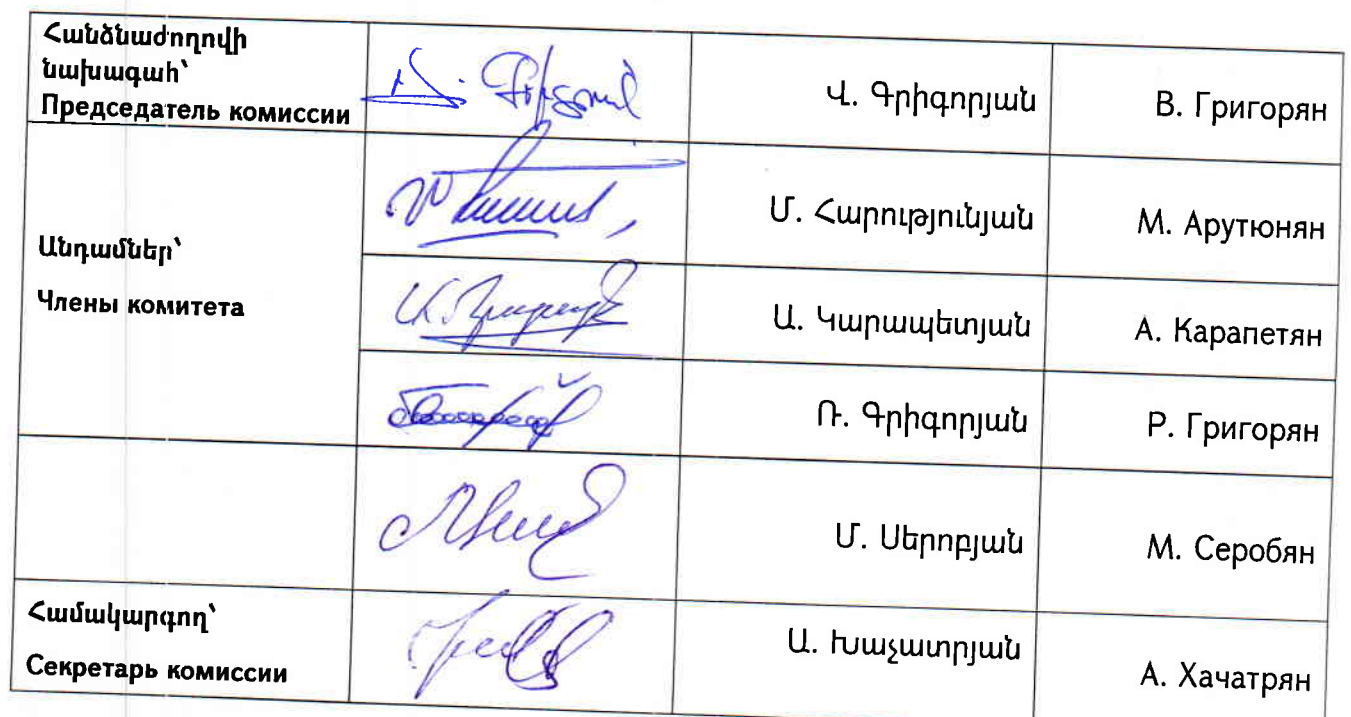 Հանձնաժողովի
նախագահ՝
Председатель комиссии
Վ. Գրիգորյան
В. Григорян
Մ. Հարությունյան
М. Арутюнян
Անդամներ՝
Члены комитета
Ա. Կարապետյան
А. Карапетян
Ռ. Գրիգորյան
Р. Григорян
Մ. Սերոբյան
М. Серобян
Համակարգող՝
Секретарь комиссии
Ա. Խաչատրյան
А. Хачатрян